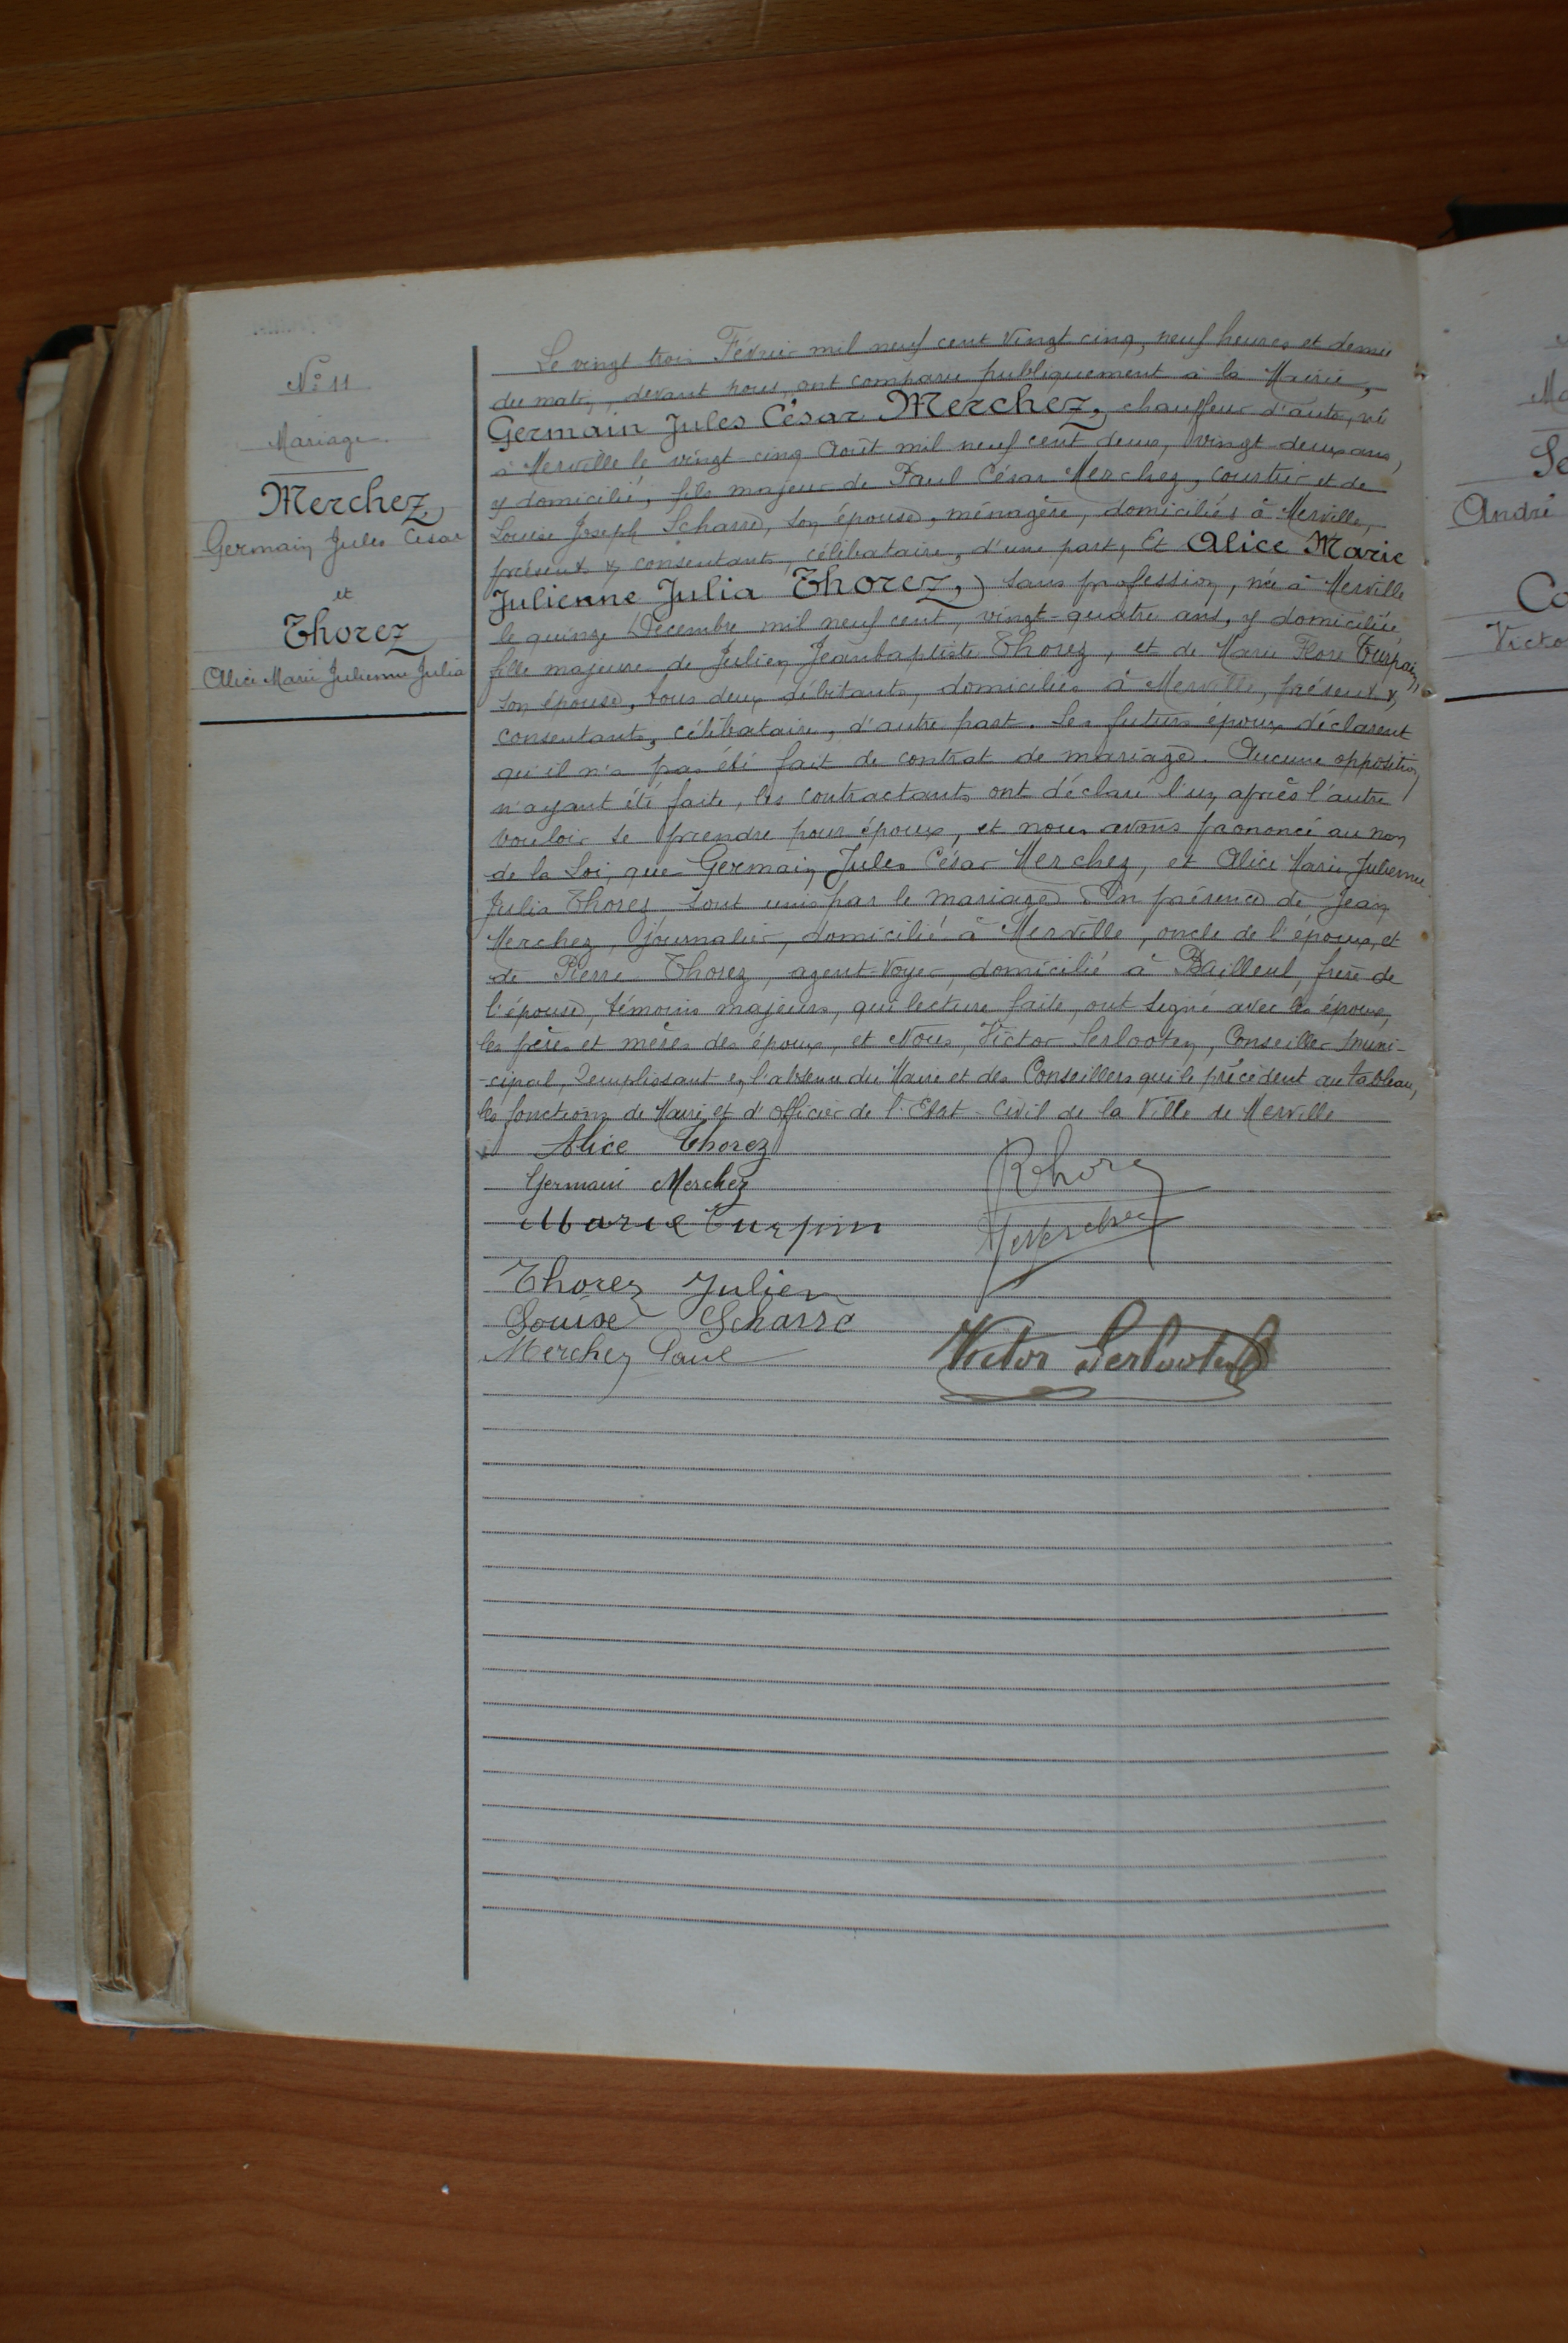 N° 11
Mariage
Merchez
Germain Jules César
et
Thorez
Alice Marie Julienne Julia
Le vingt trois Février mil neuf cent vingt cinq, neuf heures et demie
du matin, devant nous, ont comparu publiquement à la Mairie,
Germain Jules César Merchez, chauffeur d'auto, né
à Merville le vingt-cinq Août mil neuf cent deux, vingt-deux ans,
y domicilié, fils majeur de Paul César Merchez, courtier et de
Louise Joseph Scharre, son épouse, ménagère, domiciliés à Merville,
présents & consentants, célibataire, d'une part, Et Alice Marie
Julienne Julia Thorez, sans profession, née à Merville
le quinze Décembre mil neuf cent, vingt-quatre ans, y domiciliée,
fille majeure de Julien Jeanbaptiste Thorez, et de Marie Flore Turpin,
son épouse, tous deux débitants, domiciliés à Merville, présents &
consentants, célibataire, d'autre part. Les futurs époux déclarent
qu'il n'a pas été fait de contrat de mariage. Aucune opposition
n'ayant été faite, les contractants ont déclaré l'un après l'autre
vouloir se prendre pour époux, et nous avons prononcé au nom
de la Loi, que Germain Jules César Merchez, et Alice Marie Julienne
Julia Thorez sont unis par le mariage. En présence de Jean
Merchez, journalier, domicilié à Merville, oncle de l'époux, et
de Pierre Thorez, agent-voyer, domicilié à Bailleul, frère de
l'épouse, témoins majeurs, qui lecture faite, ont signé avec les époux,
les pères et mères des époux, et Nous, Victor Serlooten, Conseiller muni-
-cipal, remplissant en l'absence du Maire et des Conseillers qui le précèdent au tableau,
les fonctions de Maire et d'officier de l'Etat-Civil de la Ville de Merville
Alice Thorez
Germain Merchez
Marie Turpin
Thorez Julien
Louise Scharre
Merchez Paul
Thorez
Merchez
Victor Serlooten
Ma
Se
André
Co
Victo